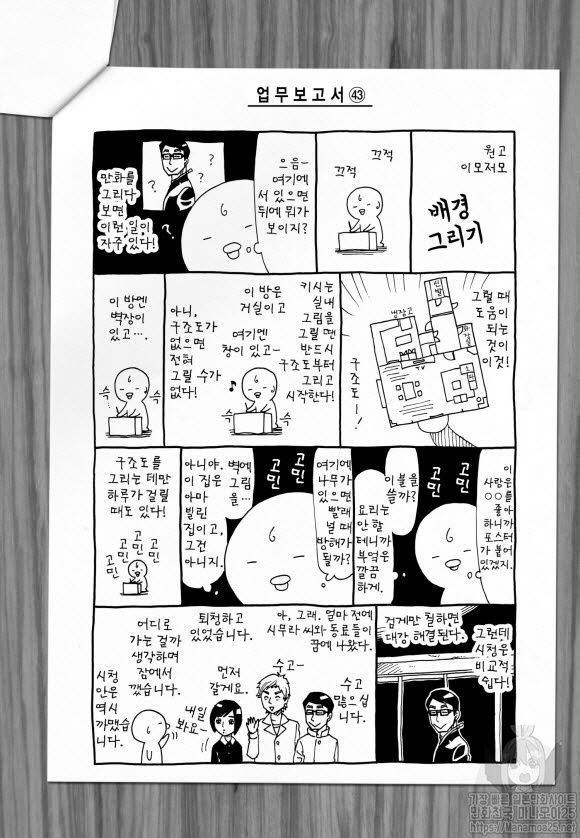 업무보고서 ㊸
원고
이모저모
배경
그리기
끄적
끄적
으음~
여기에
서 있으면
뒤에 뭐가
보이지?
?
?
?
?
만화를
그리다
보면
이런 일이
자주 있다!
그럴 때
도움이
되는
것이
이것!
신발
냉장고
TV
구조도ー!
키시는
실내
그림을
그릴 때
반드시
구조도부터
그리고
시작한다!
이 방은
거실이고
여기엔
창이 있고~
♪
슥
슥
아니,
구조도가
없으면
전혀
그릴 수가
없다!
이 방엔
벽장이
있고···.
슥
슥
이 사람은
○○를
좋아하니까
포스터가
붙어
있겠지.
고민
이불을
쓸까?
요리는
안 할
테니까
부엌은
깔끔
하게.
고민
고민
여기에
나무가
있으면
빨래
널 때
방해가
될까?
벽에
그림
을···
아니야.
이 집은
아마
빌린
집이고,
그건
아니지.
구조도를
그리는 데만
하루가 걸릴
때도 있다!
고민
고민
고민
그런데
시청은
비교적
쉽다!
검게만 칠하면
대강 해결된다.
아, 그래. 얼마 전에
시무라 씨와 동료들이
꿈에 나왔다.
수고
많으십
니다.
수고~
먼저
갈게요.
내일
봐요~
퇴청하고
있었습니다.
어디로
가는 걸까
생각하며
잠에서
깼습니다.
시청
안은
역시
까맸습
니다.
가장 빠른 일본만화사이트
만화천국 마나모아25
https://Manamoa25.net